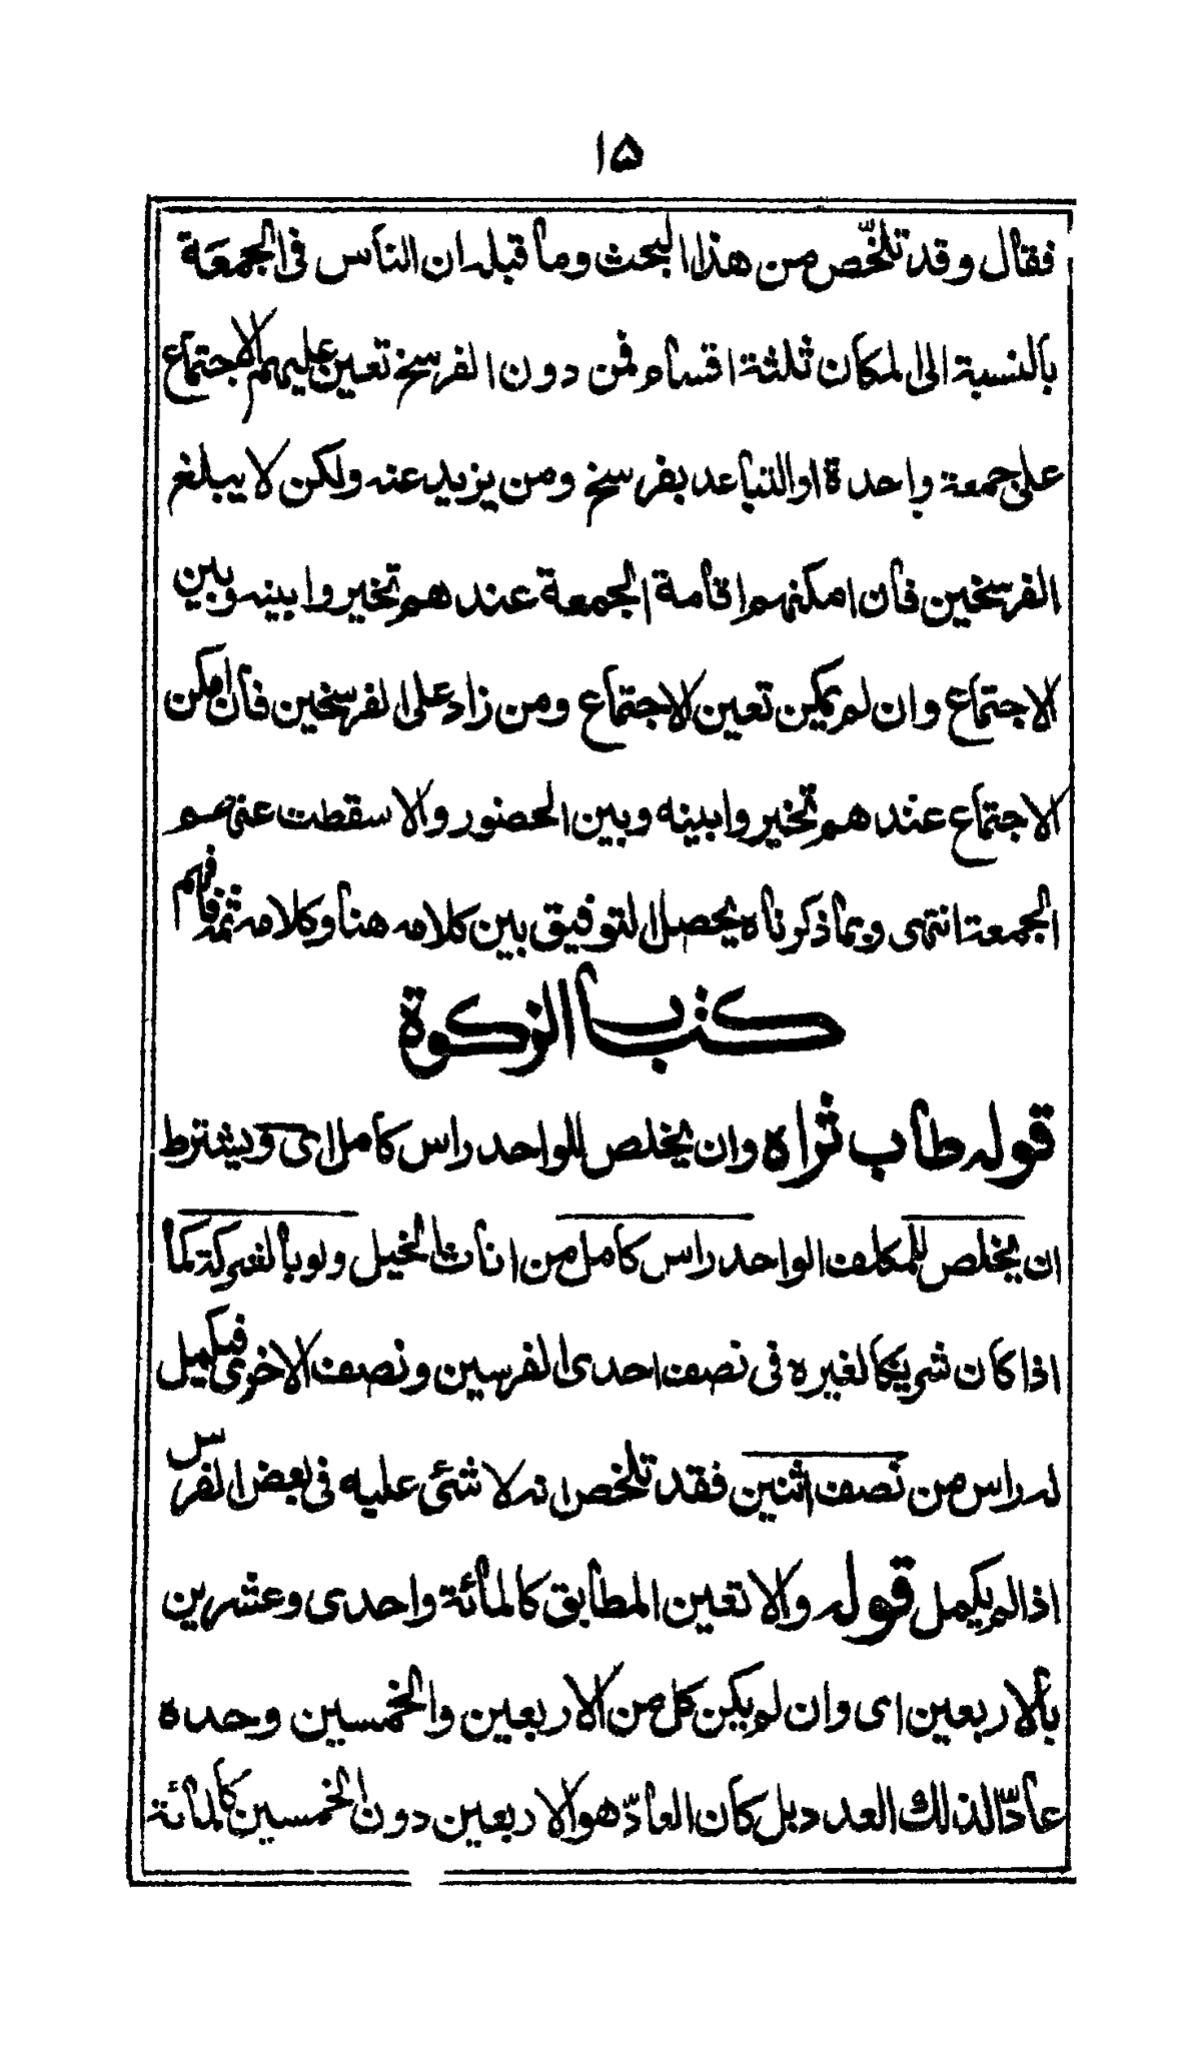 ۱۵
فقال وقد تلخّص من هذا البحث وما قبله ان الناس فى الجمعة
بالنسبة الى المكان ثلثة اقسام فمن دون الفرسخ تعين عليهم الاجتماع
على جمعة واحدة او التباعد بفرسخ ومن يزيد عنه ولكن لا يبلغ
الفرسخين فان امكنهم اقامة الجمعة عندهم تخيروا بينه وبين
الاجتماع وان لم يمكن تعين الاجتماع ومن زاد على الفرسخين فان امكن
الاجتماع عندهم تخيروا بينه وبين الحضور والا سقطت عنهم
الجمعة انتهى وبما ذكرناه يحصل التوفيق بين كلامه هنا وكلامه ثمه فافهم
كتاب الزكوة
قوله طاب ثراه وان يخلص للواحد راس كامل اى ويشترط
ان يخلص للمكلف الواحد راس كامل من اناث الخيل ولو بالشركة كما
اذا كان شريكا لغيره فى نصف احدى الفرسين ونصف الاخرى فيكمل
له راس من نصف اثنين فقد تلخص انه لا شئ عليه فى بعض الفرس
اذا لم يكمل قوله والا تعين المطابق كالمائة واحدى وعشرين
بالاربعين اى وان لم يكن كل من الاربعين والخمسين وحده
عادّا لذلك العدد بل كان العادّ هو الاربعين دون الخمسين كالمائة